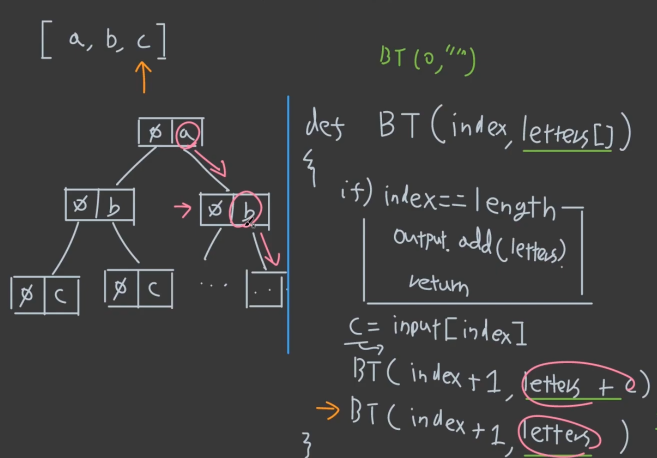 [ a, b, c ]
BT(0,"")
ø a
ø b
ø b
ø c
ø c
...
..
def BT(index, letters[])
{
if) index==length
output.add(letters)
return
c = input[index]
BT(index+1, letters + c)
BT(index+1, letters)
}